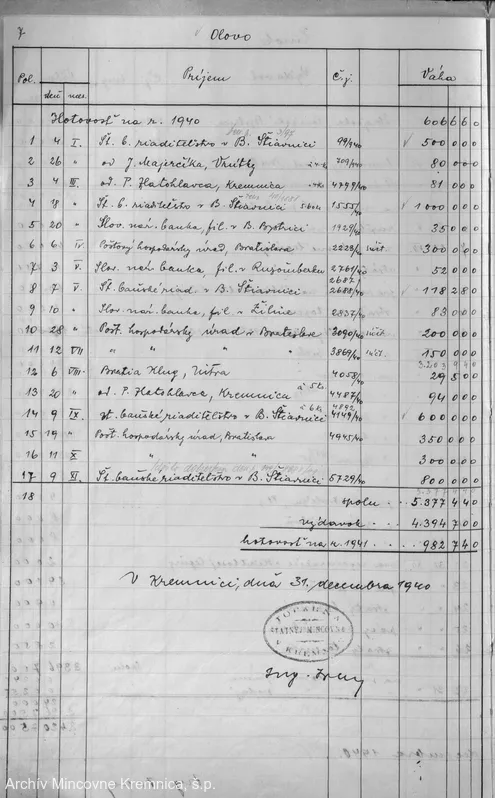 7 Olovo
Pol. Príjem Č. j. Váha
deň mes.
Hotovosť na r. 1940 606 6 6 0
1 4 I. Št. b. riaditeľstvo v B. Štiavnici 99/40 500 0 0 0
2 26 " od J. Majerčíka, Vrútky 709/40 80 0 0 0
3 4 III. od P. Hatohlavca, Kremnica 4799/40 81 0 0 0
4 18 " Št. b. riaditeľstvo v B. Štiavnici 1555/40 1000 0 0 0
5 20 " Slov. nár. banka, fil. v B. Bystrici 1929/40 35 0 0 0
6 6 IV. Poštový hospodársky úrad, Bratislava 2223/40 300 0 0 0
7 3 V. Slov. nár. banka, fil. v Ružomberku 2761/40 52 0 0 0
2687/
8 7 V. Št. banské riad. v B. Štiavnici 2688/40 118 2 8 0
9 10 " Slov. nár. banka, fil. v Žiline 2837/40 83 0 0 0
10 28 " Pošt. hospodársky úrad v Bratislave 3090/40 200 0 0 0
11 12 VII. " " " 3869/40 150 0 0 0
12 6 VIII. Bratia Klug, Nitra 4058/40 29 5 0 0
13 20 " od P. Hatohlavca, Kremnica 4487/40 94 0 0 0
14 9 IX. št. banské riaditeľstvo v B. Štiavnici 4149/40 600 0 0 0
15 19 " Pošt. hospodársky úrad, Bratislava 4945/40 350 0 0 0
16 11 X. " " 300 0 0 0
17 9 XI. Št. banské riaditeľstvo v B. Štiavnici 5729/40 800 0 0 0
18 spolu . . 5.377 4 4 0
výdavok . . 4.394 7 0 0
hotovosť na r. 1941 . . 982 7 4 0
V Kremnici, dňa 31. decembra 1940
ŠTÁTNEJ MINCOVNE
Ing.
Archív Mincovne Kremnica, š.p.